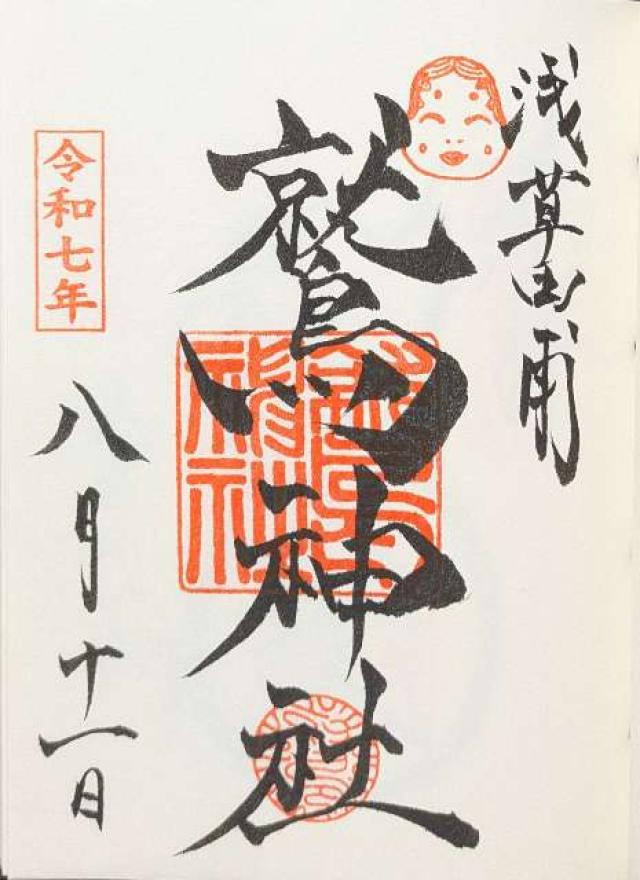 浅草田甫
鷲神社
令和七年
八月十一日